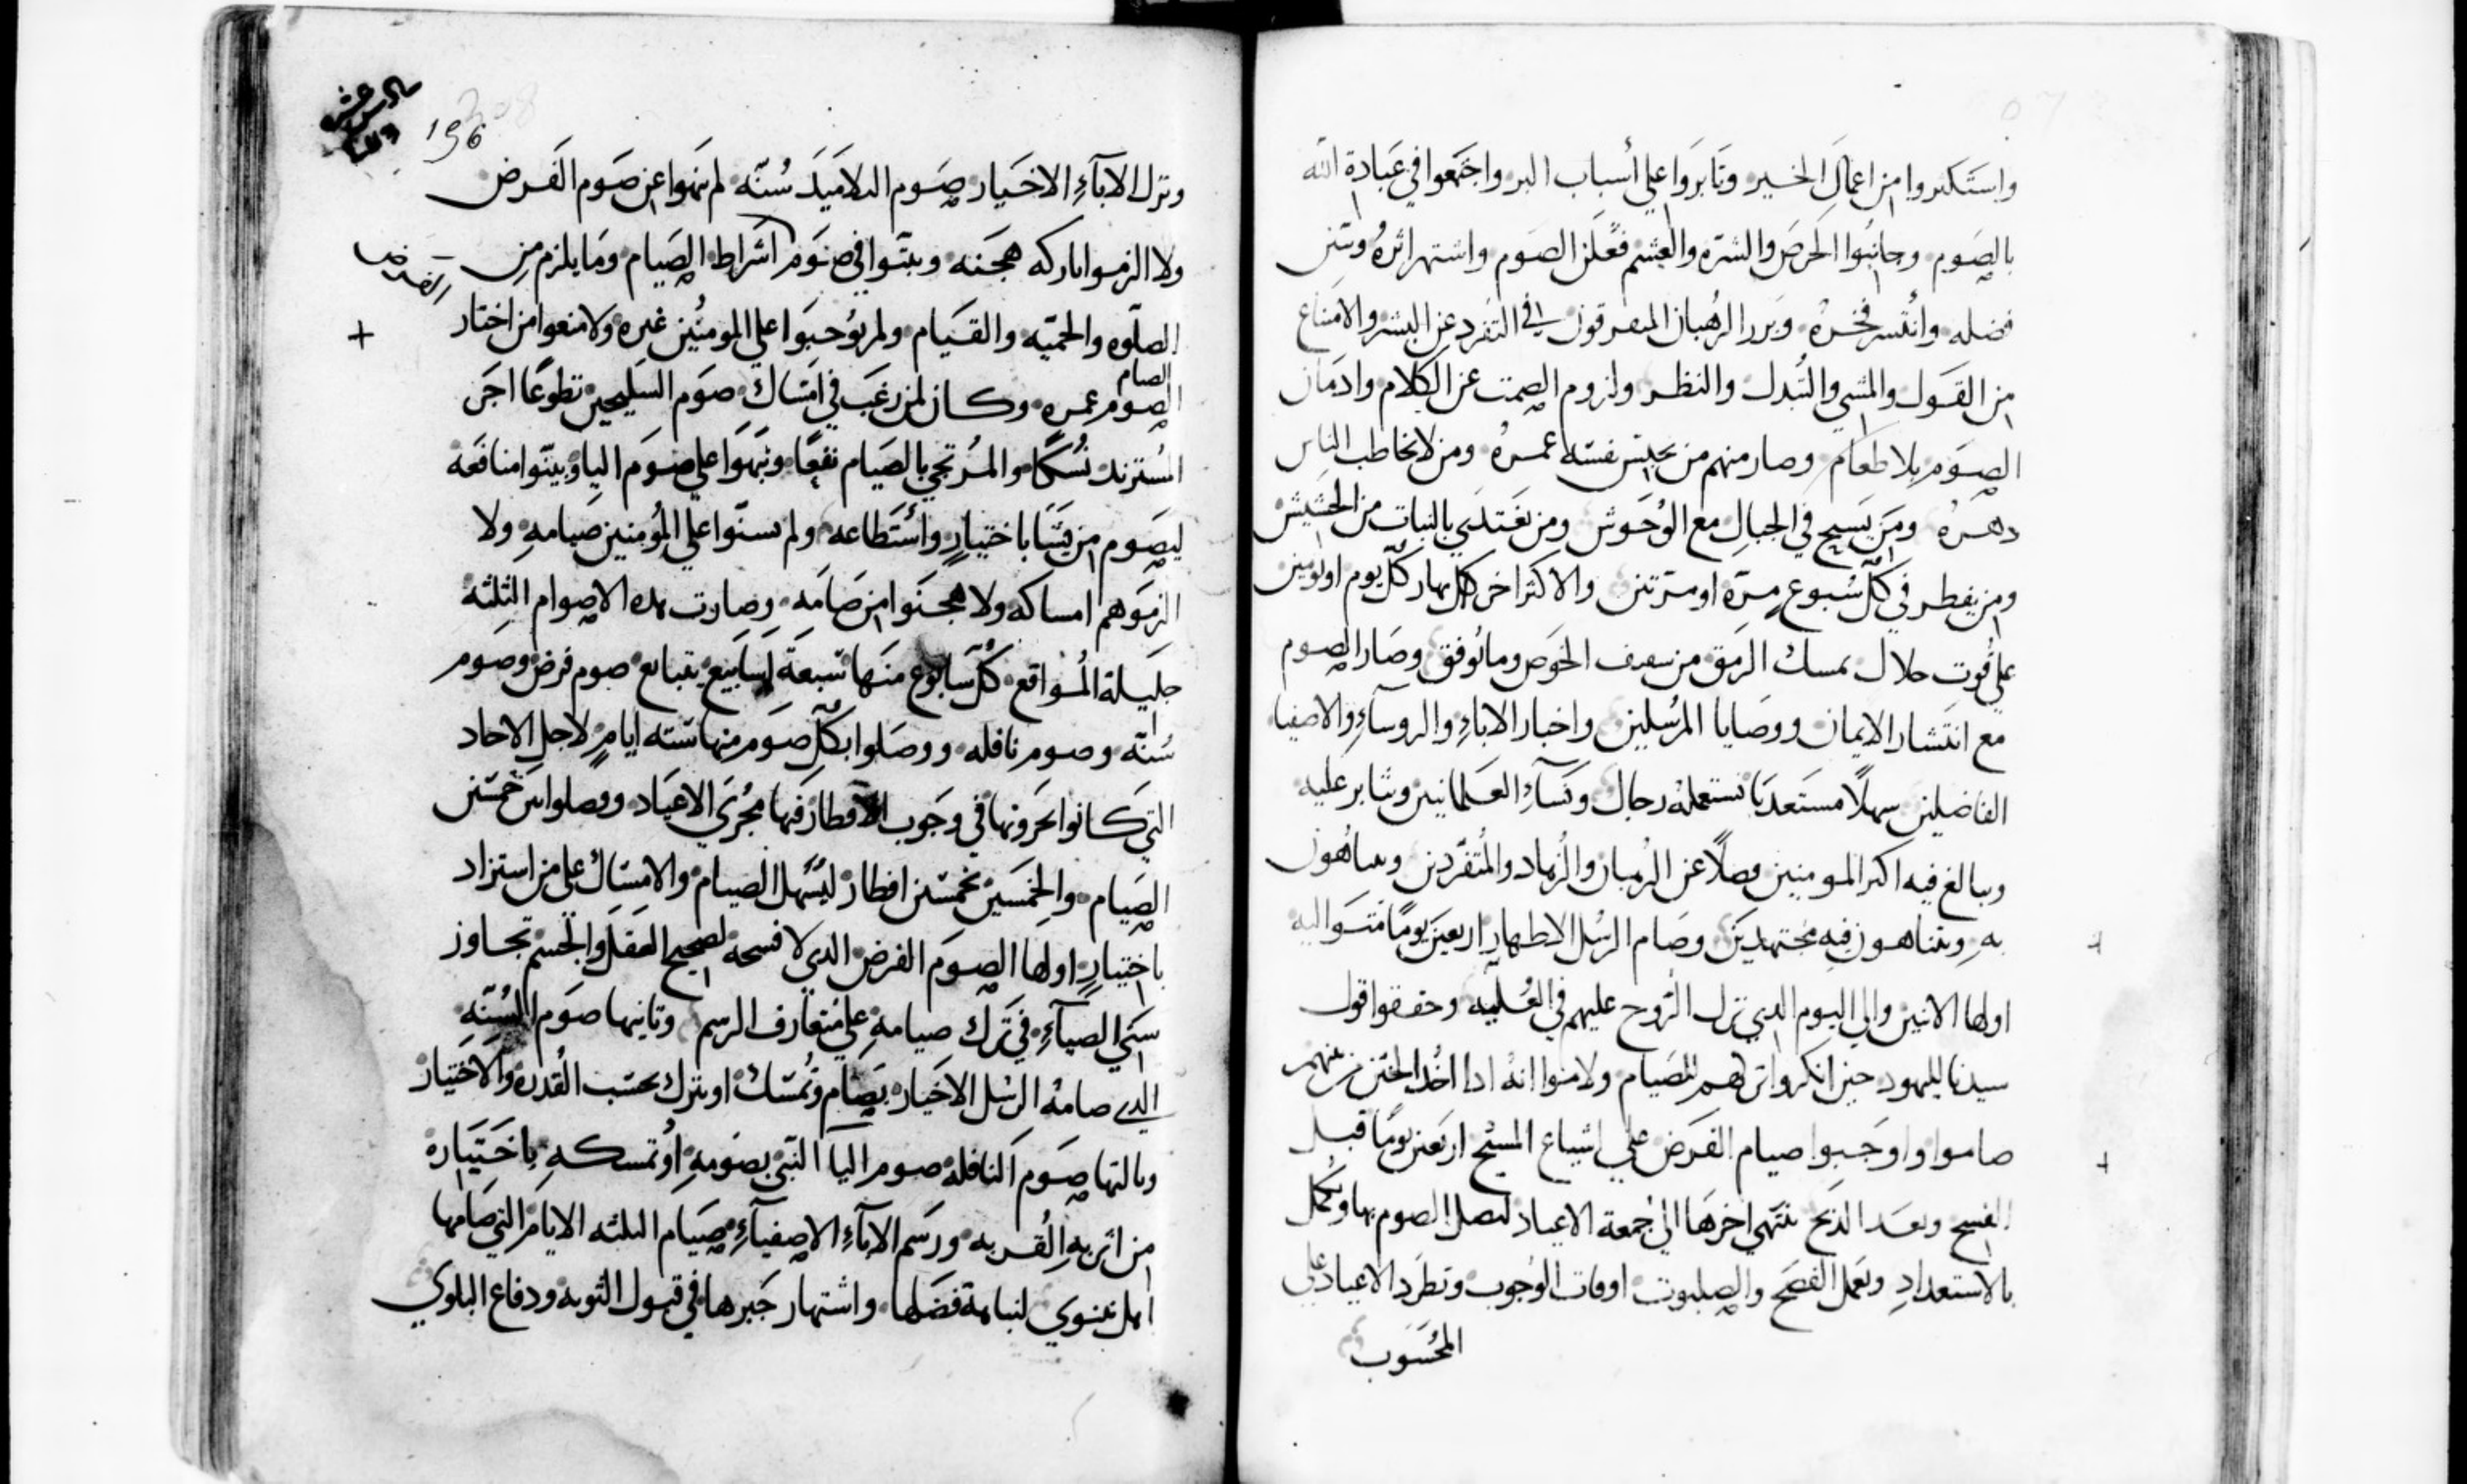 واستكبروا من اعمال الخير وثابروا علي أسباب البر واجتمعوا في عبادة الله
بالصوم وجانبوا الحرص والشره والغشم فعلن الصوم واشتهر اثره وتبين
فضله وانتشر فخره وبرر الرهبان المفرقون في التفرد عن البشر والامتناع
من القول والمشي والتبدل والنظر ولزوم الصمت عن الكلام وادمان
الصوم بلا طعام وصار منهم من يحبس نفسه عمره ومن لا يخاطب الناس
دهره ومن يسيح في الجبال مع الوحوش ومن يغتدي بالنبات من الحشيش
ومن يفطر في كل سبوع مرة او مرتين والاكثر اخر كل نهار كل يوم او يومين
علي قوت حلال يمسك الرمق من سعف الخوص وما توفق وصار الصوم
مع انتشار الايمان ووصايا المرسلين واخبار الاباء والروساء والاصفيا
الفاضلين سهلا مستعدبا تستعمله رجال ونساء العلمانيين ويثابر عليه
ويبالغ فيه اكثر المومنين فضلا عن الرهبان والزهاد والمتفردين ويباهون
به ويتناهون فيه مجتهدين وصام الرسل الاطهار اربعين يوما متواليه
اولها الاثنين والي اليوم الدي نزل الروح عليهم في العلية وحققوا قول
سيدنا لليهود حين انكروا تركهم للصيام ولاموا انه ادا اخد الختن منهم
صاموا واوجبوا صيام الفرض علي اشياع المسيح اربعين يوما قبل
الفسح وبعد الدبح ينتهي اخرها الي جمعة الاعياد ليصل الصوم بها ويكمل
بالاستعداد وبعمل الفصح والصلبوت اوقات الوجوب وتطرد الاعياد علي
المحسوب
مادس عشر
208
196
ونزل الاباء الاخيار صوم التلاميد سنه لم ينهوا عن صوم الفرض
ولا الزموا تاركه هجنه وبيتوا في صوم اشراط الصيام وما يلزم من
الفرض
الصلوه والحميه والقيام ولم يوجبوا علي المومنين غيره ولا منعوا من اختار
الصيام
الصوم عمره وكان لمن رغب في امساك صوم السليحين تطوعا اجر
المستزيد نسكا والمرتجي بالصيام نفعا ونبهوا علي صوم اليا وبينوا منافعه
ليصوم من يشا باختيار واستطاعه ولم يسنوا علي المومنين صيامه ولا
الزموهم امساكه ولا هجنوا من صامه وصارت هده الاصوام الثلثه
جليلة المواقع كل سابوع منها سبعة اسابيع يتبايع صوم فرض وصوم
سنه وصوم نافله ووصلوا بكل صوم منها سته ايام لاجل الاحاد
التي كانوا يجرونها في وجوب الافطار فيها مجري الاعياد ووصلوا بين خمسين
الصيام والخمسين بخمسين افطار ليسهل الصيام والامساك علي من استزاد
باختيار اولها الصوم الفرض الدي لا فسحه لصحيح العقل والجسم تجاوز
سني الصباء في ترك صيامه علي متعارف الرسم وثانيها صوم السنه
الدي صامه الرسل الاخيار يصام وتمسك او يترك بحسب القدره والاختيار
وثالثها صوم النافله صوم اليا النبي بصومه او تمسكه باختياره
من اثر به القربه ورسم الاباء الاصفياء صيام الثلثه الايام التي صامها
اهل نينوي لنباهة فضلها واشتهار خبرها في قبول التوبه ودفاع البلوي